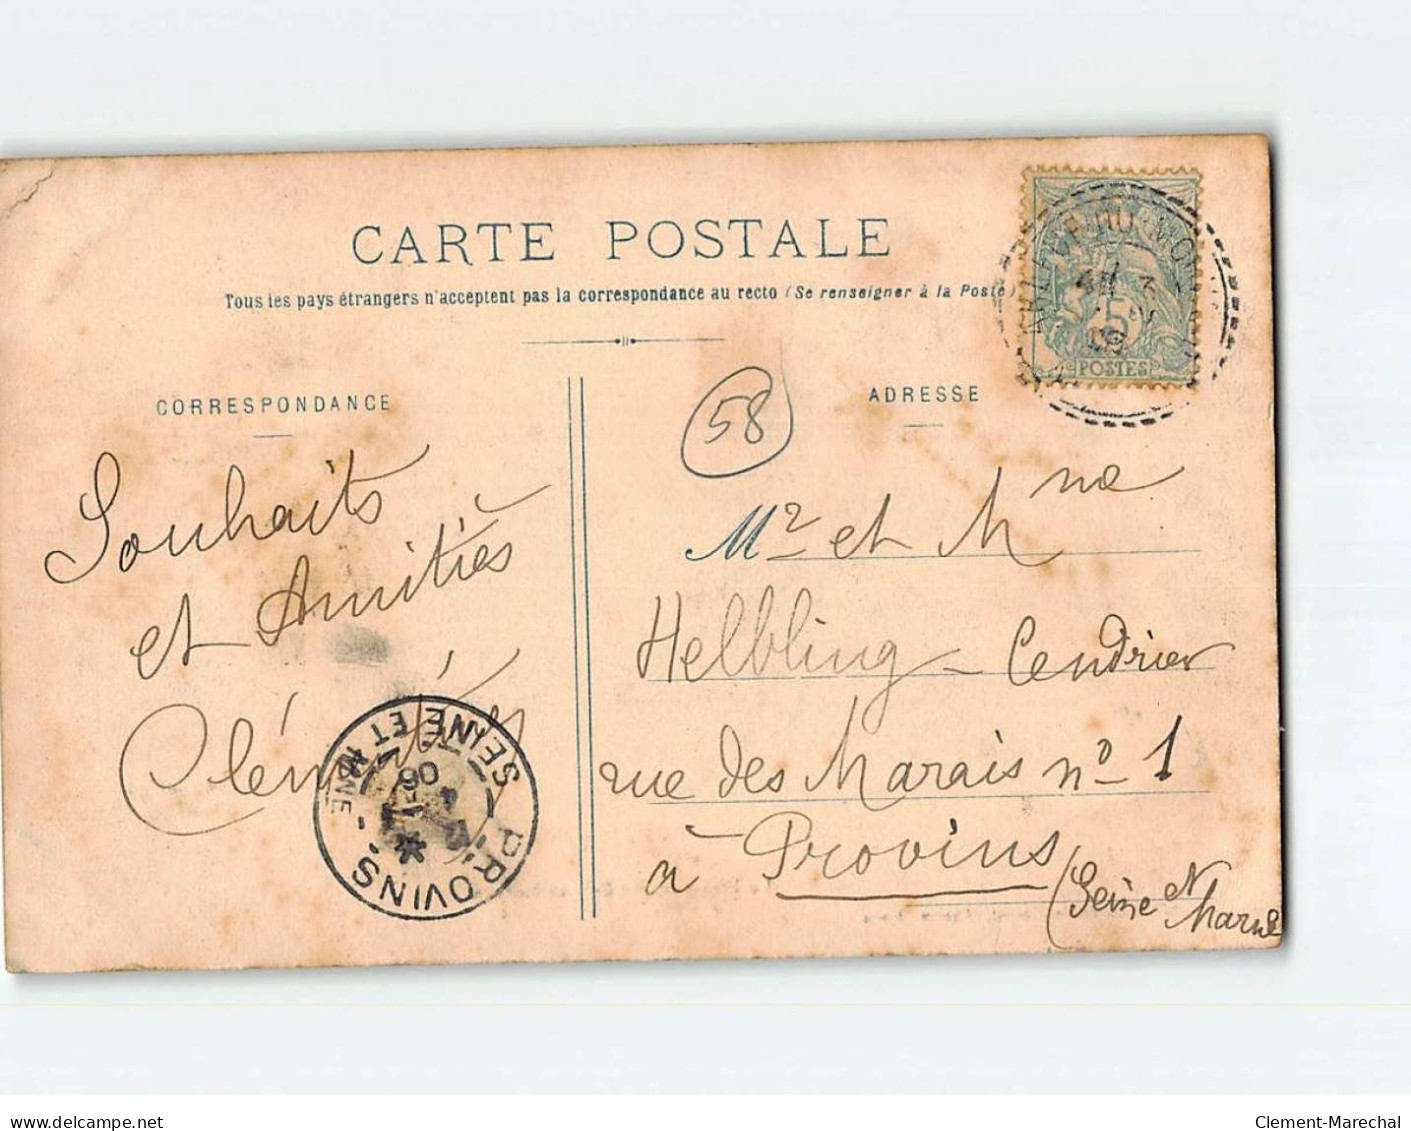 CARTE POSTALE
Tous les pays étrangers n'acceptent pas la correspondance au recto (Se renseigner à la Poste)
CORRESPONDANCE
Souhaits
et Amitiés
58
ADRESSE
Mr et Mme
Helbling - Cendrier
rue des Marais no 1
à Provins
(Seine et Marne
5
POSTES
PROVINS
SEINE ET MNE
06
delcampe.net
Clement-Marechal